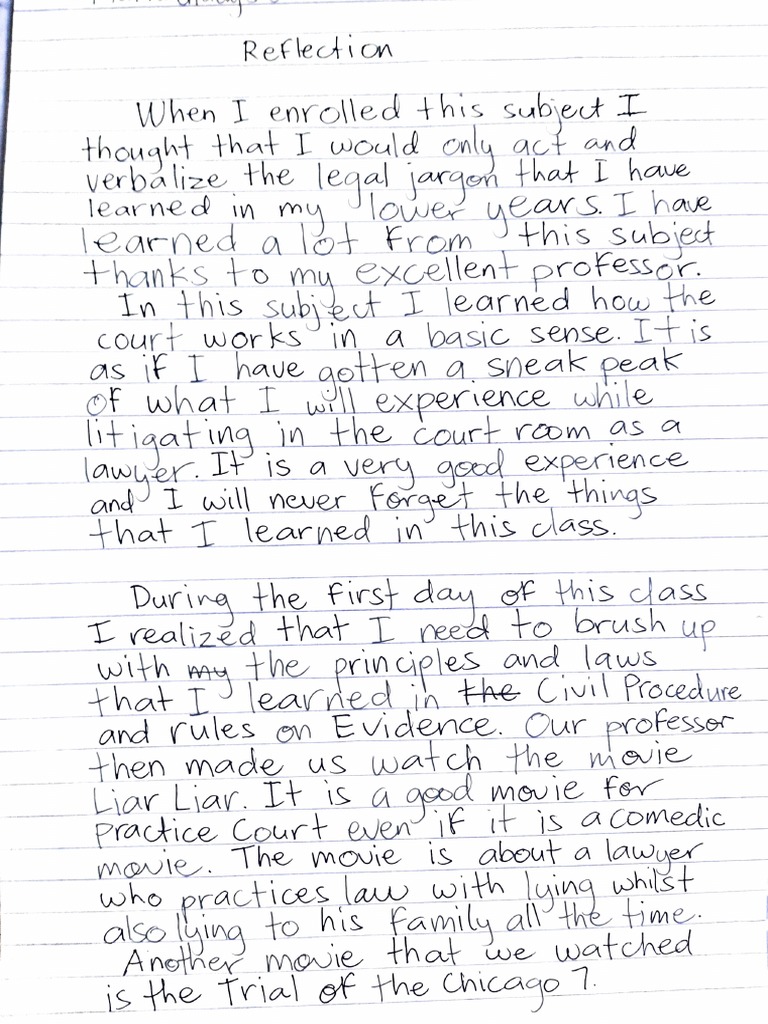 Reflection
When I enrolled this subject I
thought that I would only act and
verbalize the legal jargon that I have
learned in my lower years. I have
learned a lot from this subject
thanks to my excellent professor.
In this subject I learned how the
court works in a basic sense. It is
as if I have gotten a sneak peak
of what I will experience while
litigating in the court room as a
lawyer. It is a very good experience
and I will never forget the things
that I learned in this class.
During the first day of this class
I realized that I need to brush up
with my the principles and laws
that I learned in the Civil Procedure
and rules on Evidence. Our professor
then made us watch the movie
Liar Liar. It is a good movie for
Practice Court even if it is a comedic
movie. The movie is about a lawyer
who practices law with lying whilst
also lying to his family all the time.
Another movie that we watched
is the Trial of the Chicago 7.